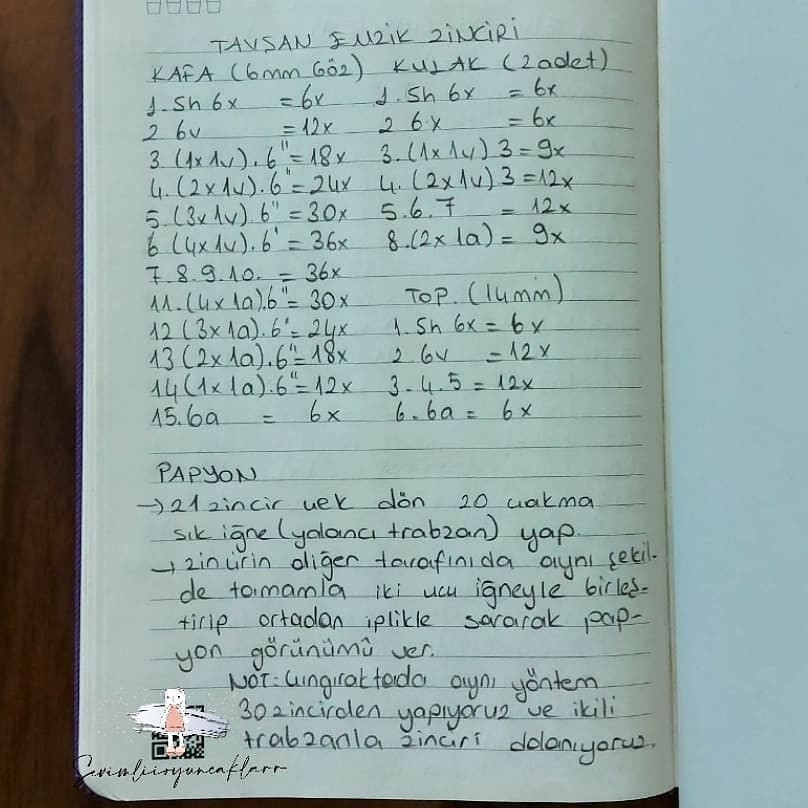 TAVŞAN EMZİK ZİNCİRİ
KAFA (6mm GÖZ)
1. Sh 6x = 6x
2 6v = 12x
3 (1x1v).6" = 18x
4. (2x1v).6" = 24x
5. (3x1v).6" = 30x
6 (4x1v).6' = 36x
7.8.9.10. = 36x
11. (4x1a).6" = 30x
12 (3x1a).6' = 24x
13 (2x1a).6" = 18x
14 (1x1a).6" = 12x
15. 6a = 6x
KULAK (2 adet)
1. Sh 6x = 6x
2 6x = 6x
3. (1x1v) 3 = 9x
4. (2x1v) 3 = 12x
5.6.7 = 12x
8. (2x1a) = 9x
TOP. (14mm)
1. Sh 6x = 6x
2 6v = 12x
3.4.5 = 12x
6. 6a = 6x
PAPYON
→ 21 zincir çek dön 20 çakma
sık iğne (yalancı trabzan) yap.
→ zincirin diğer tarafınıda aynı şekil-
de tamamla iki ucu iğneyle birleş-
tirip ortadan iplikle sararak pap-
yon görünümü ver.
NOT: Çıngıraktada aynı yöntem
30 zincirden yapıyoruz ve ikili
trabzanla zinciri dolanıyoruz.
Sevimliioyuncaklarr